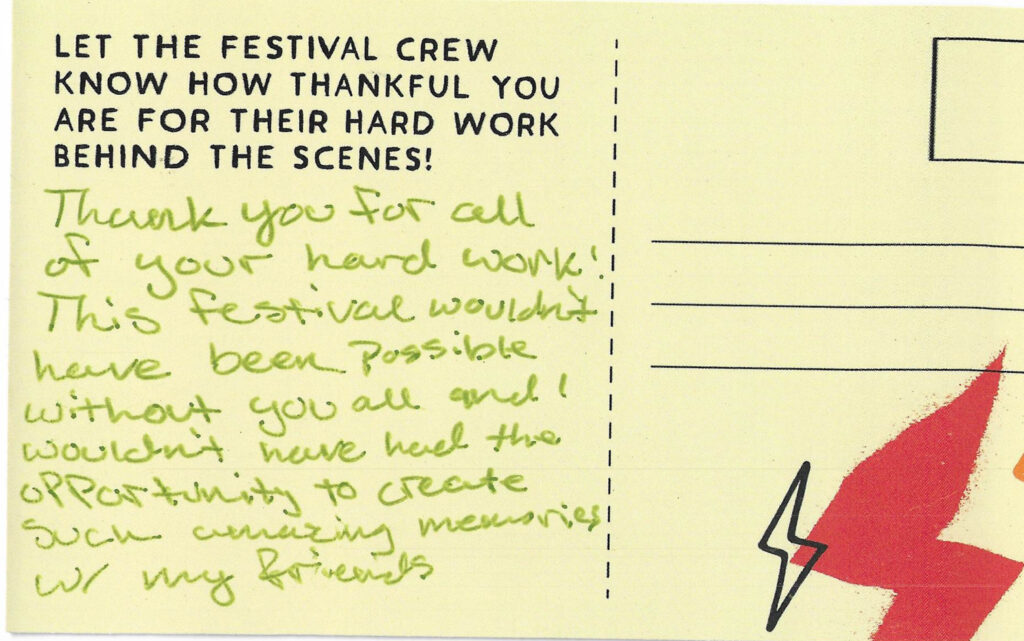 LET THE FESTIVAL CREW
KNOW HOW THANKFUL YOU
ARE FOR THEIR HARD WORK
BEHIND THE SCENES!
Thank you for all
of your hard work!
This festival wouldn't
have been possible
without you all and I
wouldn't have had the
opportunity to create
such amazing memories
w/ my friends